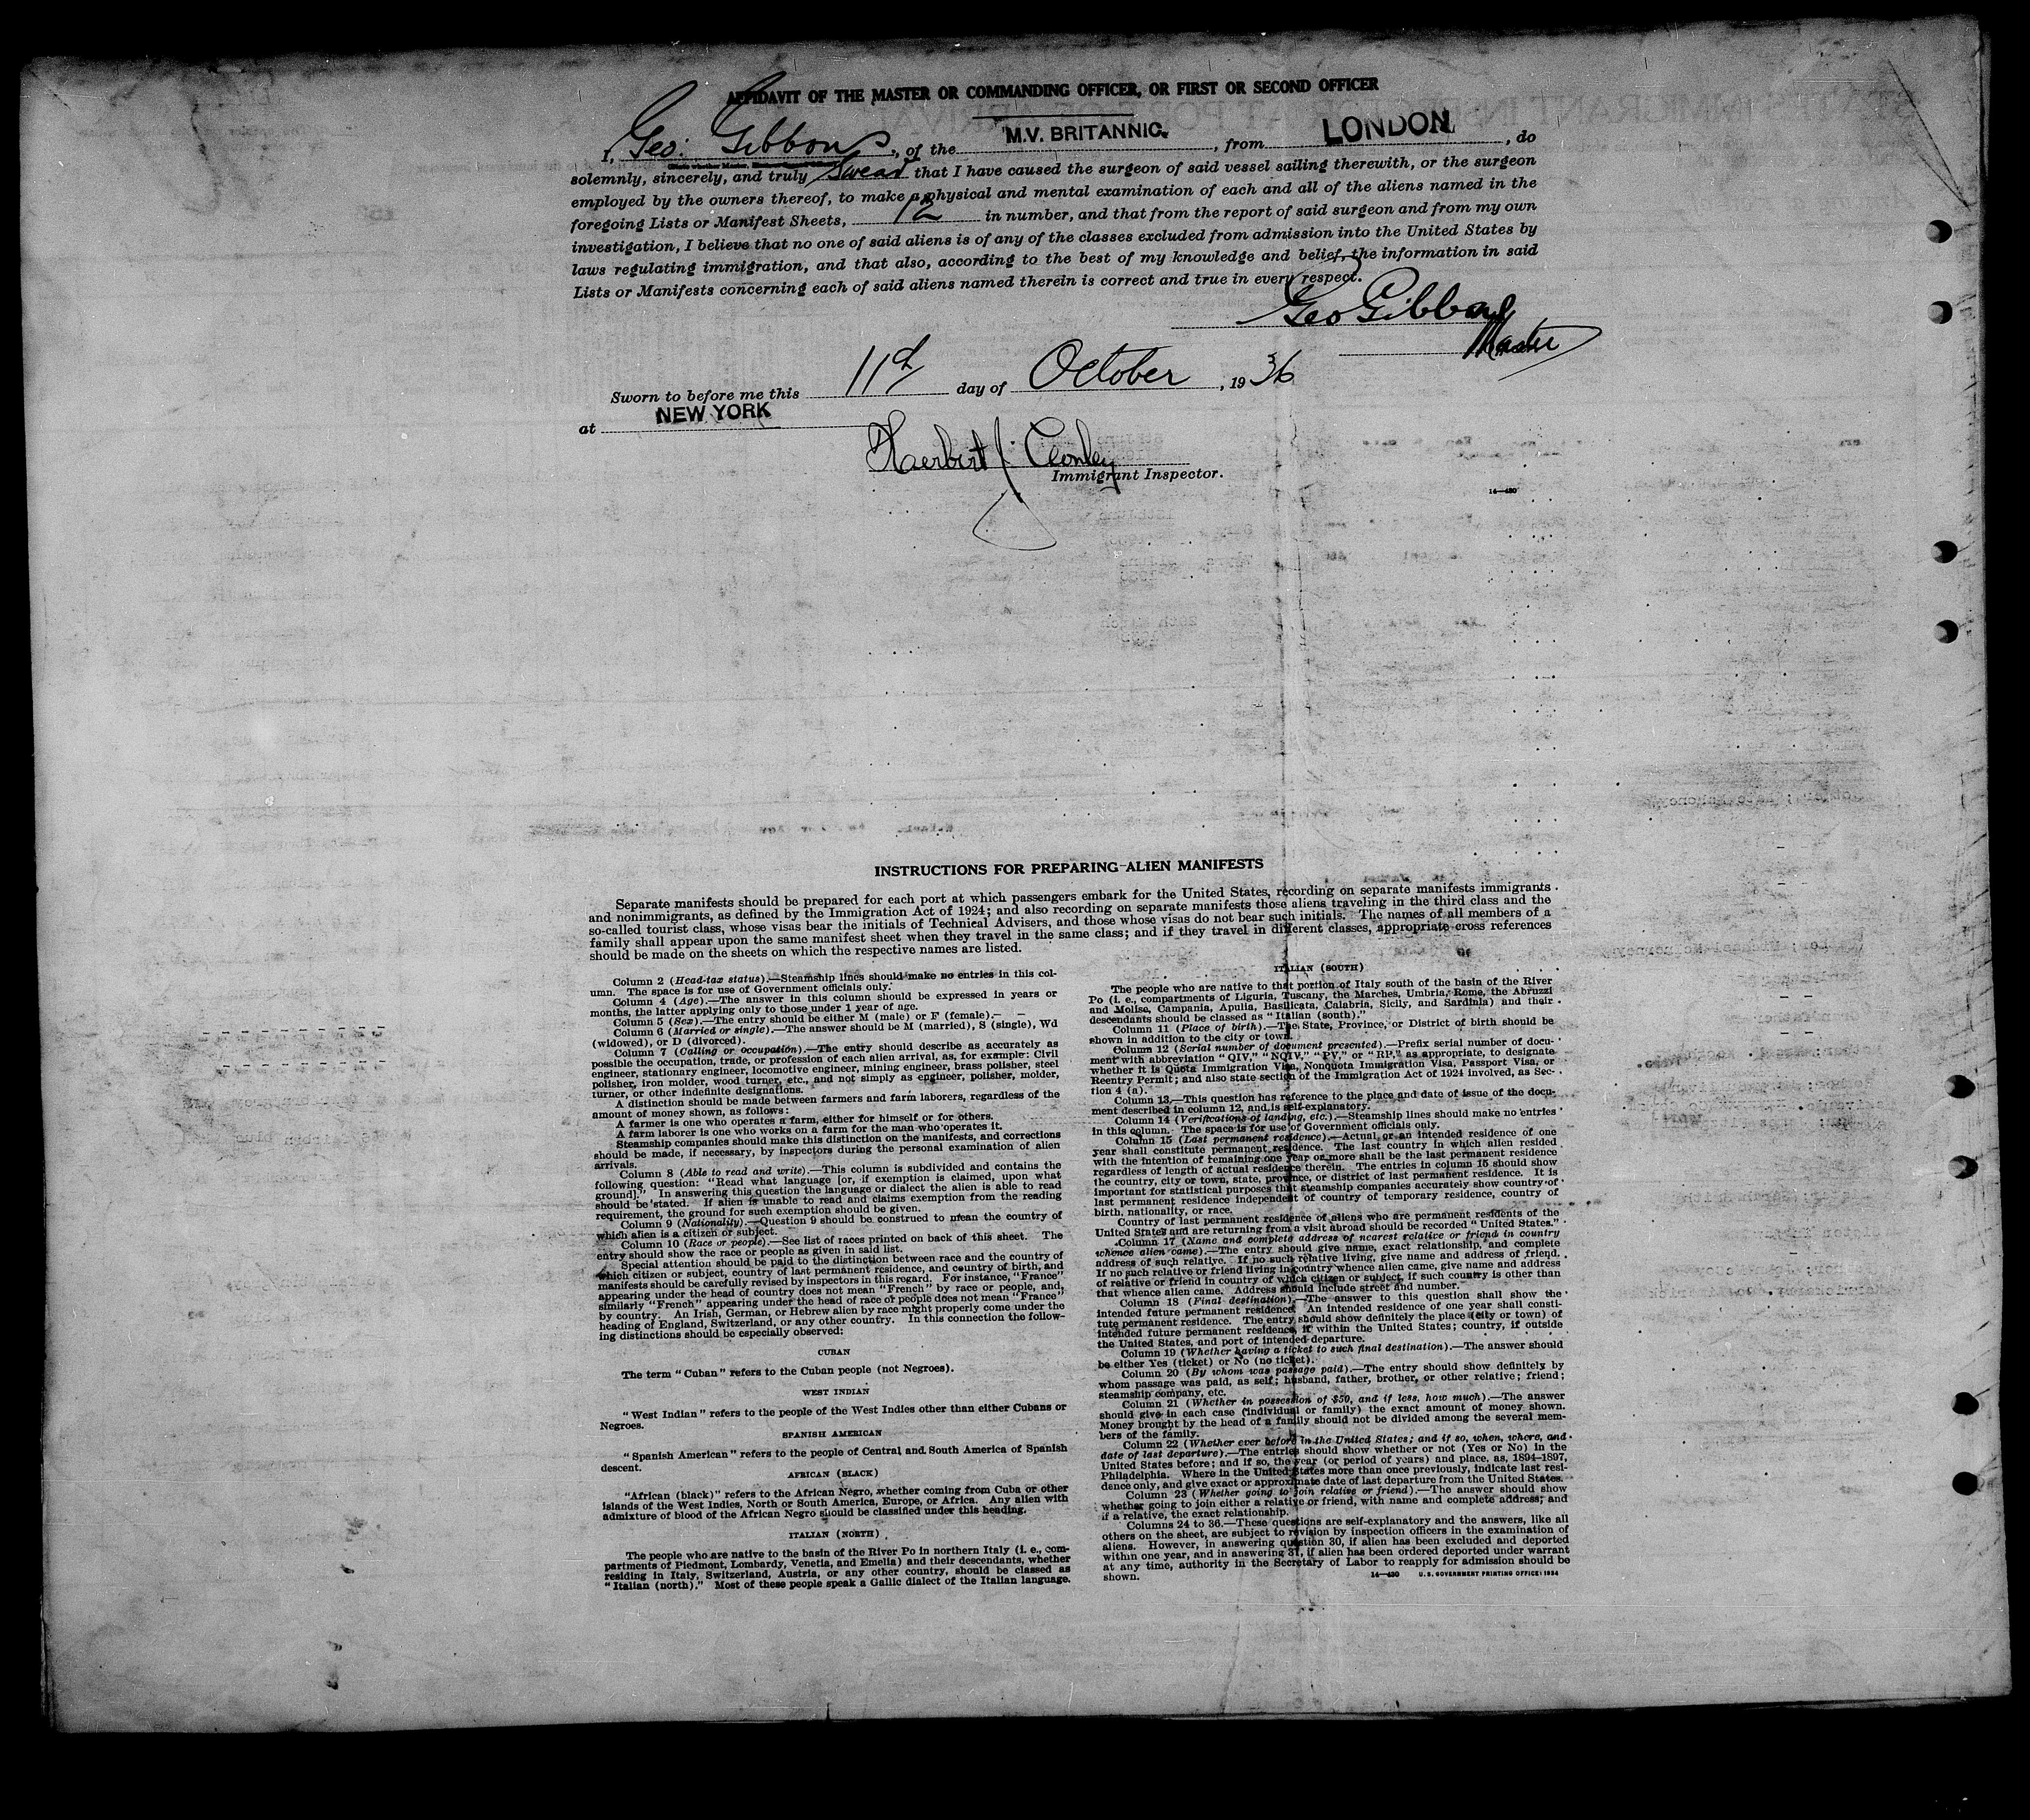 AFFIDAVIT OF THE MASTER OR COMMANDING OFFICER, OR FIRST OR SECOND OFFICER
I, Geo: Gibbons, of the M.V. BRITANNIC, from LONDON, do
solemnly, sincerely, and truly swear that I have caused the surgeon of said vessel sailing therewith, or the surgeon
employed by the owners thereof, to make a physical and mental examination of each and all of the aliens named in the
foregoing Lists or Manifest Sheets, 12 in number, and that from the report of said surgeon and from my own
investigation, I believe that no one of said aliens is of any of the classes excluded from admission into the United States by
laws regulating immigration, and that also, according to the best of my knowledge and belief, the information in said
Lists or Manifests concerning each of said aliens named therein is correct and true in every respect.
Geo Gibbons
Master
Sworn to before me this 11th day of October, 1936
at NEW YORK
Herbert J. Conley
Immigrant Inspector.
14—430
INSTRUCTIONS FOR PREPARING ALIEN MANIFESTS
Separate manifests should be prepared for each port at which passengers embark for the United States, recording on separate manifests immigrants
and nonimmigrants, as defined by the Immigration Act of 1924; and also recording on separate manifests those aliens traveling in the third class and the
so-called tourist class, whose visas bear the initials of Technical Advisers, and those whose visas do not bear such initials. The names of all members of a
family shall appear upon the same manifest sheet when they travel in the same class; and if they travel in different classes, appropriate cross references
should be made on the sheets on which the respective names are listed.
Column 2 (Head-tax status).—Steamship lines should make no entries in this col-
umn. The space is for use of Government officials only.
Column 4 (Age).—The answer in this column should be expressed in years or
months, the latter applying only to those under 1 year of age.
Column 5 (Sex).—The entry should be either M (male) or F (female).
Column 6 (Married or single).—The answer should be M (married), S (single), Wd
(widowed), or D (divorced).
Column 7 (Calling or occupation).—The entry should describe as accurately as
possible the occupation, trade, or profession of each alien arrival, as, for example: Civil
engineer, stationary engineer, locomotive engineer, mining engineer, brass polisher, steel
polisher, iron molder, wood turner, etc., and not simply as engineer, polisher, molder,
turner, or other indefinite designations.
A distinction should be made between farmers and farm laborers, regardless of the
amount of money shown, as follows:
A farmer is one who operates a farm, either for himself or for others.
A farm laborer is one who works on a farm for the man who operates it.
Steamship companies should make this distinction on the manifests, and corrections
should be made, if necessary, by inspectors during the personal examination of alien
arrivals.
Column 8 (Able to read and write).—This column is subdivided and contains the
following question: "Read what language [or, if exemption is claimed, upon what
ground]." In answering this question the language or dialect the alien is able to read
should be stated. If alien is unable to read and claims exemption from the reading
requirement, the ground for such exemption should be given.
Column 9 (Nationality).—Question 9 should be construed to mean the country of
which alien is a citizen or subject.
Column 10 (Race or people).—See list of races printed on back of this sheet. The
entry should show the race or people as given in said list.
Special attention should be paid to the distinction between race and the country of
which citizen or subject, country of last permanent residence, and country of birth, and
manifests should be carefully revised by inspectors in this regard. For instance, "France"
appearing under the head of country does not mean "French" by race or people, and,
similarly "French" appearing under the head of race or people does not mean "France"
by country. An Irish, German, or Hebrew alien by race might properly come under the
heading of England, Switzerland, or any other country. In this connection the follow-
ing distinctions should be especially observed:
CUBAN
The term "Cuban" refers to the Cuban people (not Negroes).
WEST INDIAN
"West Indian" refers to the people of the West Indies other than either Cubans or
Negroes.
SPANISH AMERICAN
"Spanish American" refers to the people of Central and South America of Spanish
descent.
AFRICAN (BLACK)
"African (black)" refers to the African Negro, whether coming from Cuba or other
islands of the West Indies, North or South America, Europe, or Africa. Any alien with
admixture of blood of the African Negro should be classified under this heading.
ITALIAN (NORTH)
The people who are native to the basin of the River Po in northern Italy (i. e., com-
partments of Piedmont, Lombardy, Venetia, and Emelia) and their descendants, whether
residing in Italy, Switzerland, Austria, or any other country, should be classed as
"Italian (north)." Most of these people speak a Gallic dialect of the Italian language.
ITALIAN (SOUTH)
The people who are native to that portion of Italy south of the basin of the River
Po (i. e., compartments of Liguria, Tuscany, the Marches, Umbria, Rome, the Abruzzi
and Molise, Campania, Apulia, Basilicata, Calabria, Sicily, and Sardinia) and their
descendants should be classed as "Italian (south)."
Column 11 (Place of birth).—The State, Province, or District of birth should be
shown in addition to the city or town.
Column 12 (Serial number of document presented).—Prefix serial number of docu-
ment with abbreviation "QIV," "NQIV," "PV," or "RP," as appropriate, to designate
whether it is Quota Immigration Visa, Nonquota Immigration Visa, Passport Visa, or
Reentry Permit; and also state section of the Immigration Act of 1924 involved, as Sec-
tion 4 (a).
Column 13.—This question has reference to the place and date of issue of the docu-
ment described in column 12, and is self-explanatory.
Column 14 (Verifications of landing, etc.).—Steamship lines should make no entries
in this column. The space is for use of Government officials only.
Column 15 (Last permanent residence).—Actual or an intended residence of one
year shall constitute permanent residence. The last country in which alien resided
with the intention of remaining one year or more shall be the last permanent residence
regardless of length of actual residence therein. The entries in column 15 should show
the country, city or town, state, province, or district of last permanent residence. It is
important for statistical purposes that steamship companies accurately show country of
last permanent residence independent of country of temporary residence, country of
birth, nationality, or race.
Country of last permanent residence of aliens who are permanent residents of the
United States and are returning from a visit abroad should be recorded "United States."
Column 17 (Name and complete address of nearest relative or friend in country
whence alien came).—The entry should give name, exact relationship, and complete
address of such relative. If no such relative living, give name and address of friend.
If no such relative or friend living in country whence alien came, give name and address
of relative or friend in country of which citizen or subject, if such country is other than
that whence alien came. Address should include street and number.
Column 18 (Final destination).—The answer to this question shall show the
intended future permanent residence. An intended residence of one year shall consti-
tute permanent residence. The entry should show definitely the place (city or town) of
intended future permanent residence, if within the United States; country, if outside
the United States, and port of intended departure.
Column 19 (Whether having a ticket to such final destination).—The answer should
be either Yes (ticket) or No (no ticket).
Column 20 (By whom was passage paid).—The entry should show definitely by
whom passage was paid, as self; husband, father, brother, or other relative; friend;
steamship company, etc.
Column 21 (Whether in possession of $50, and if less, how much).—The answer
should give in each case (individual or family) the exact amount of money shown.
Money brought by the head of a family should not be divided among the several mem-
bers of the family.
Column 22 (Whether ever before in the United States; and if so, when, where, and
date of last departure).—The entries should show whether or not (Yes or No) in the
United States before; and if so, the year (or period of years) and place, as, 1894-1897,
Philadelphia. Where in the United States more than once previously, indicate last resi-
dence only, and give exact or approximate date of last departure from the United States.
Column 23 (Whether going to join relative or friend).—The answer should show
whether going to join either a relative or friend, with name and complete address; and
if a relative, the exact relationship.
Columns 24 to 36.—These questions are self-explanatory and the answers, like all
others on the sheet, are subject to revision by inspection officers in the examination of
aliens. However, in answering question 30, if alien has been excluded and deported
within one year, and in answering 31, if alien has been ordered deported under warrant
at any time, authority in the Secretary of Labor to reapply for admission should be
shown.
14—430 U. S. GOVERNMENT PRINTING OFFICE: 1934